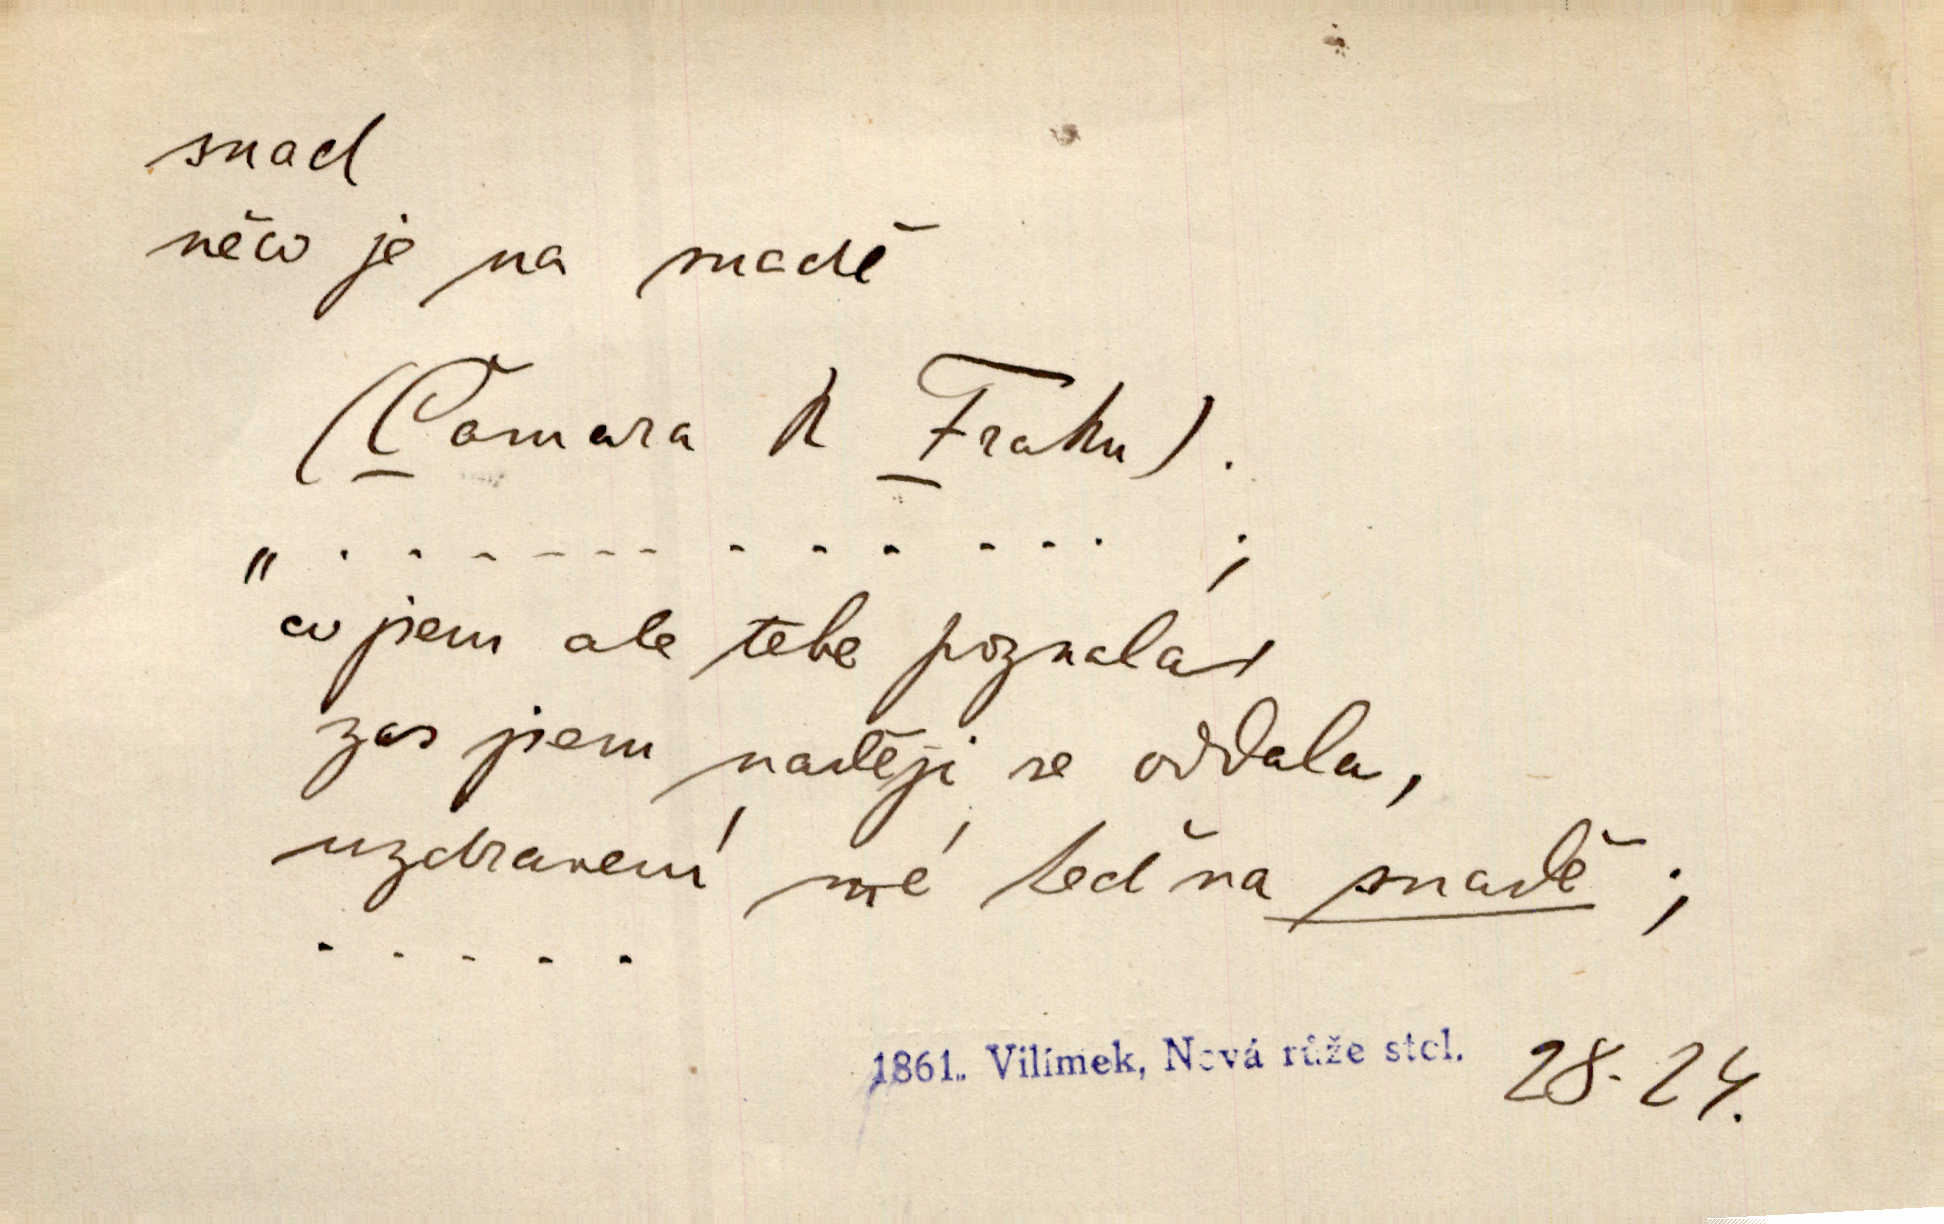 snad
něco je na snadě
(Čamara k Fraku).
„ . . . . . . . . . . . . . . ;
co jsem ale tebe poznala,
zas jsem naději se oddala,
uzdravení mé teď na snadě ;
. . . . .
1861. Vilímek, Nová růže stol. 28-24.